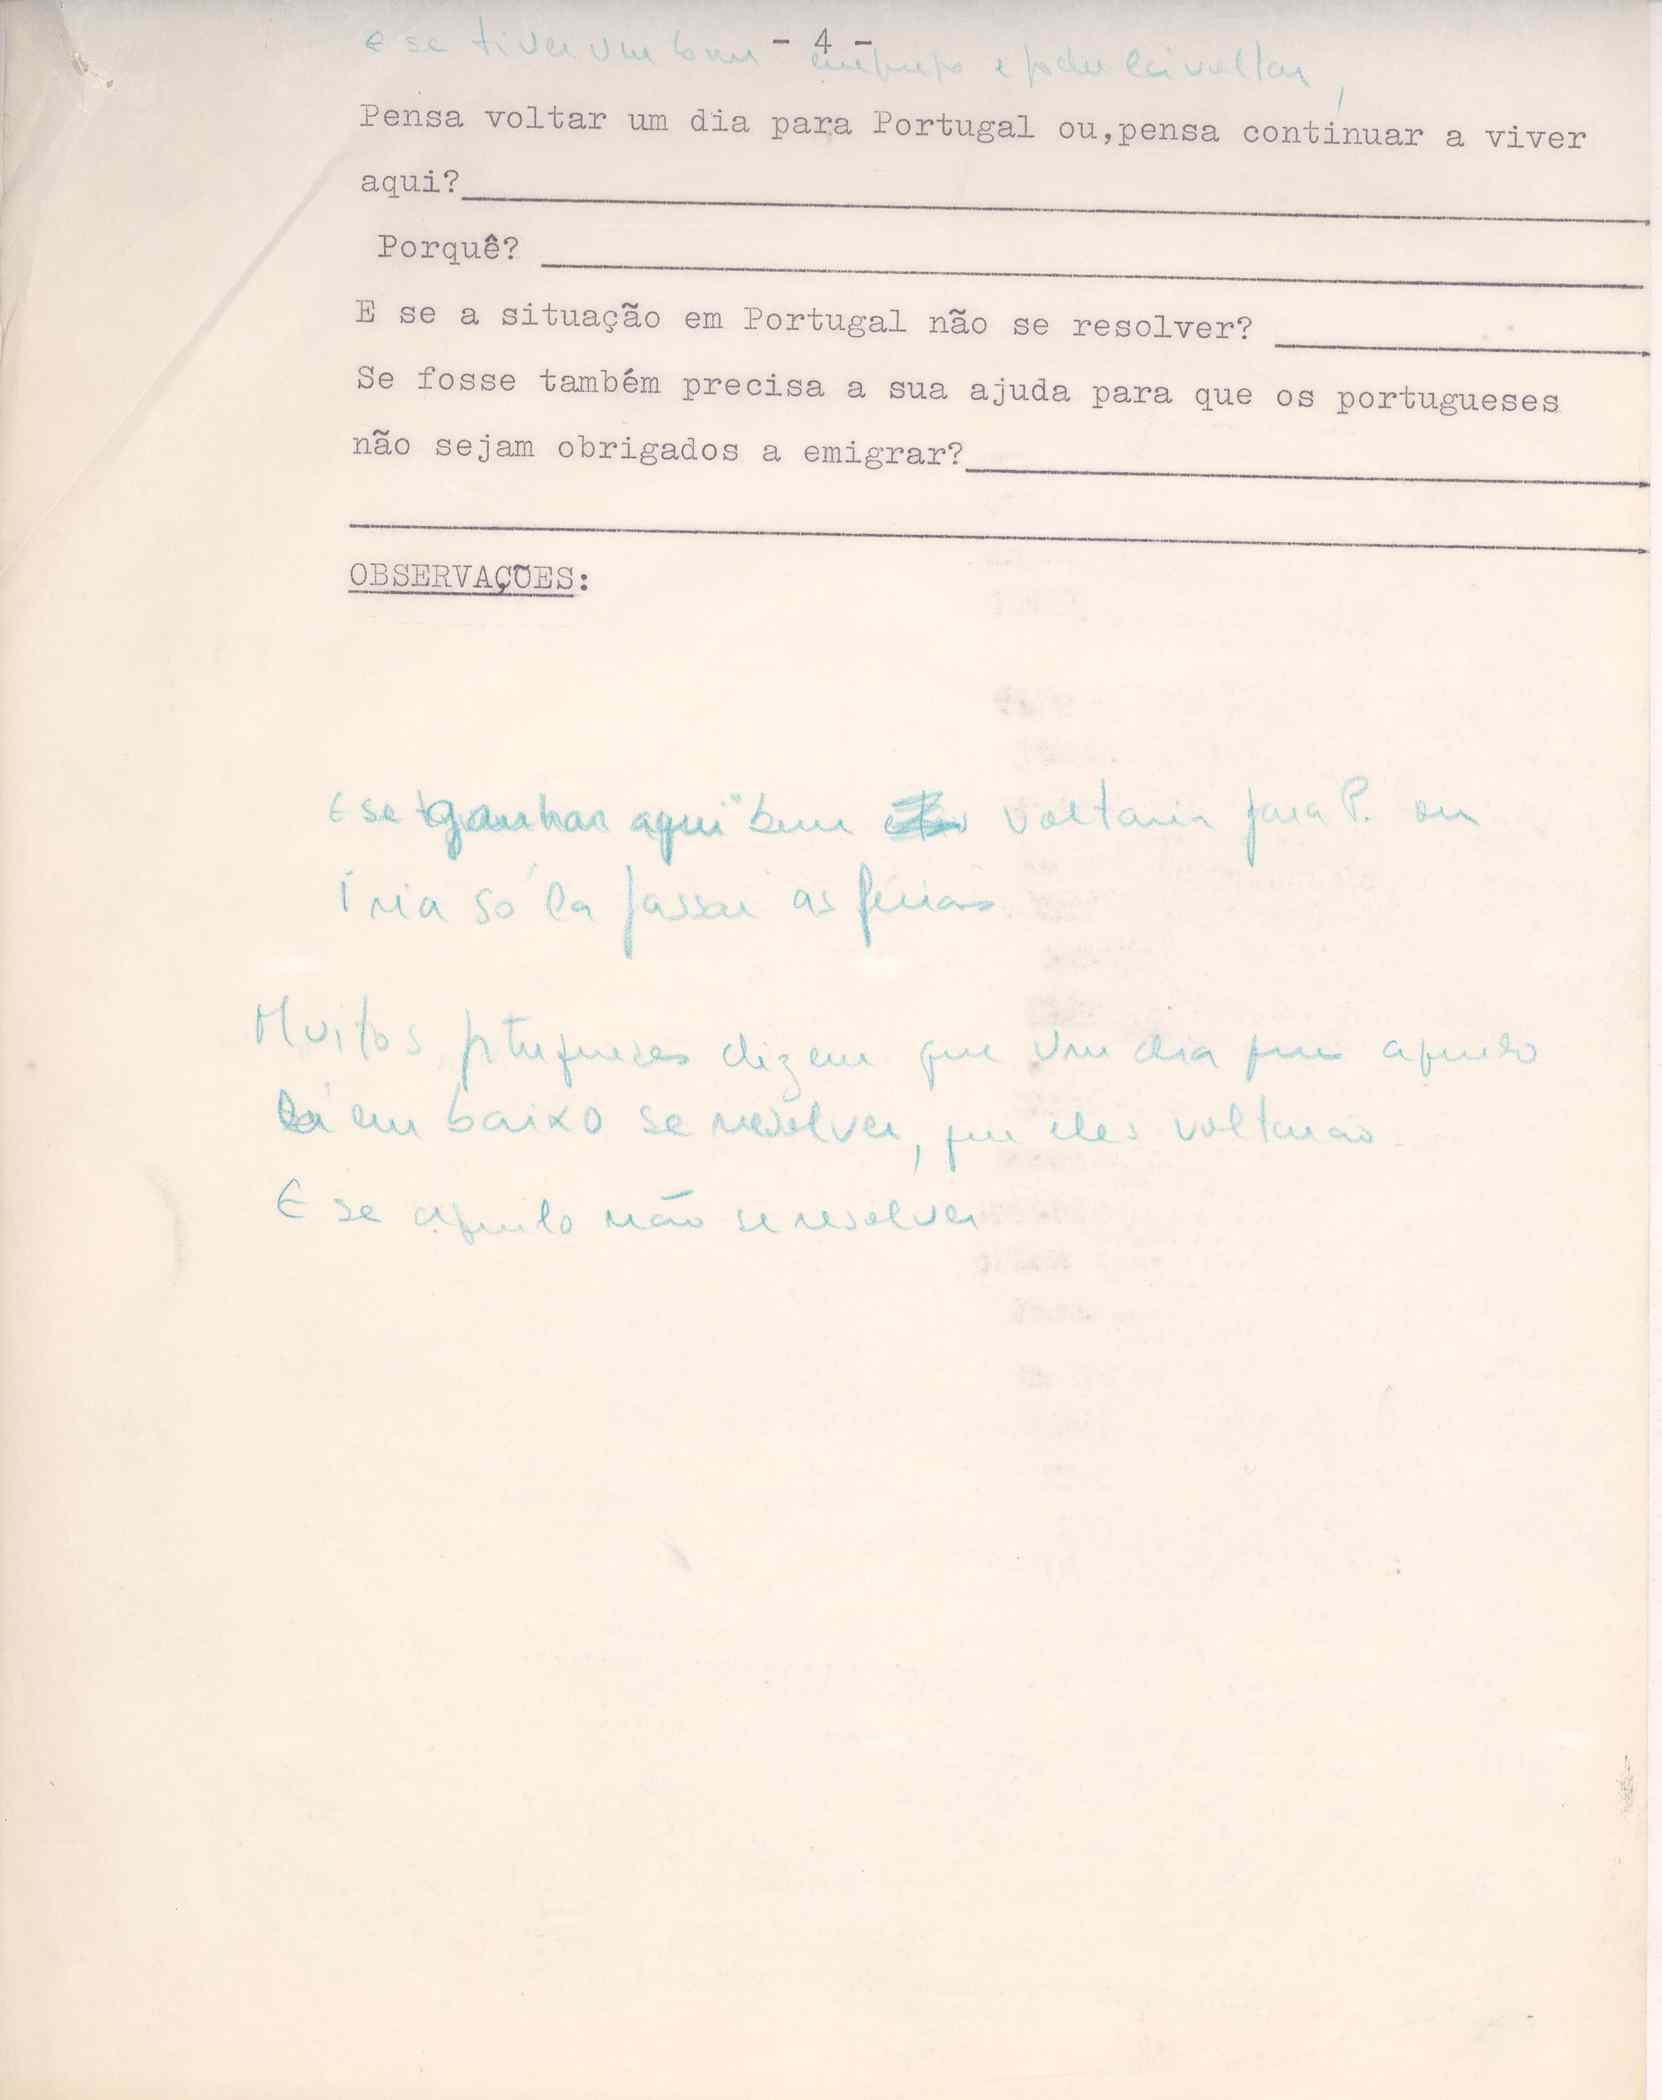 - 4 -
e se tiver um bom emprego e poder lá voltar,
Pensa voltar um dia para Portugal ou,pensa continuar a viver
aqui?
Porquê?
E se a situação em Portugal não se resolver?
Se fosse também precisa a sua ajuda para que os portugueses
não sejam obrigados a emigrar?
OBSERVAÇÕES:
E se ganhar aqui bem voltaria para P. ou
Iria só lá passar as férias
Muitos ptugueses dizem que um dia que aquilo
lá em baixo se resolver, que eles voltarão
E se aquilo não se resolver